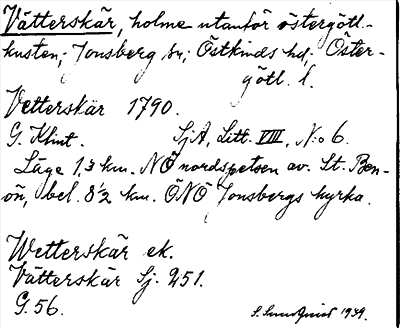 Vätterskär, holme utanför östergötl.-
kusten; Jonsberg sn; Östkinds hd. Öster-
götl. l.
Vetterskär 1790.
G. Klint. SjA, Litt. VIII, N:o 6.
Läge 1,3 km. NÖ nordspetsen av St. Ben-
ön, bel. 8½ km. ÖNÖ Jonsbergs kyrka.
Wetterskär ek.
Vätterskär Sj. 251.
G. 56.
S. Sundquist 1939.